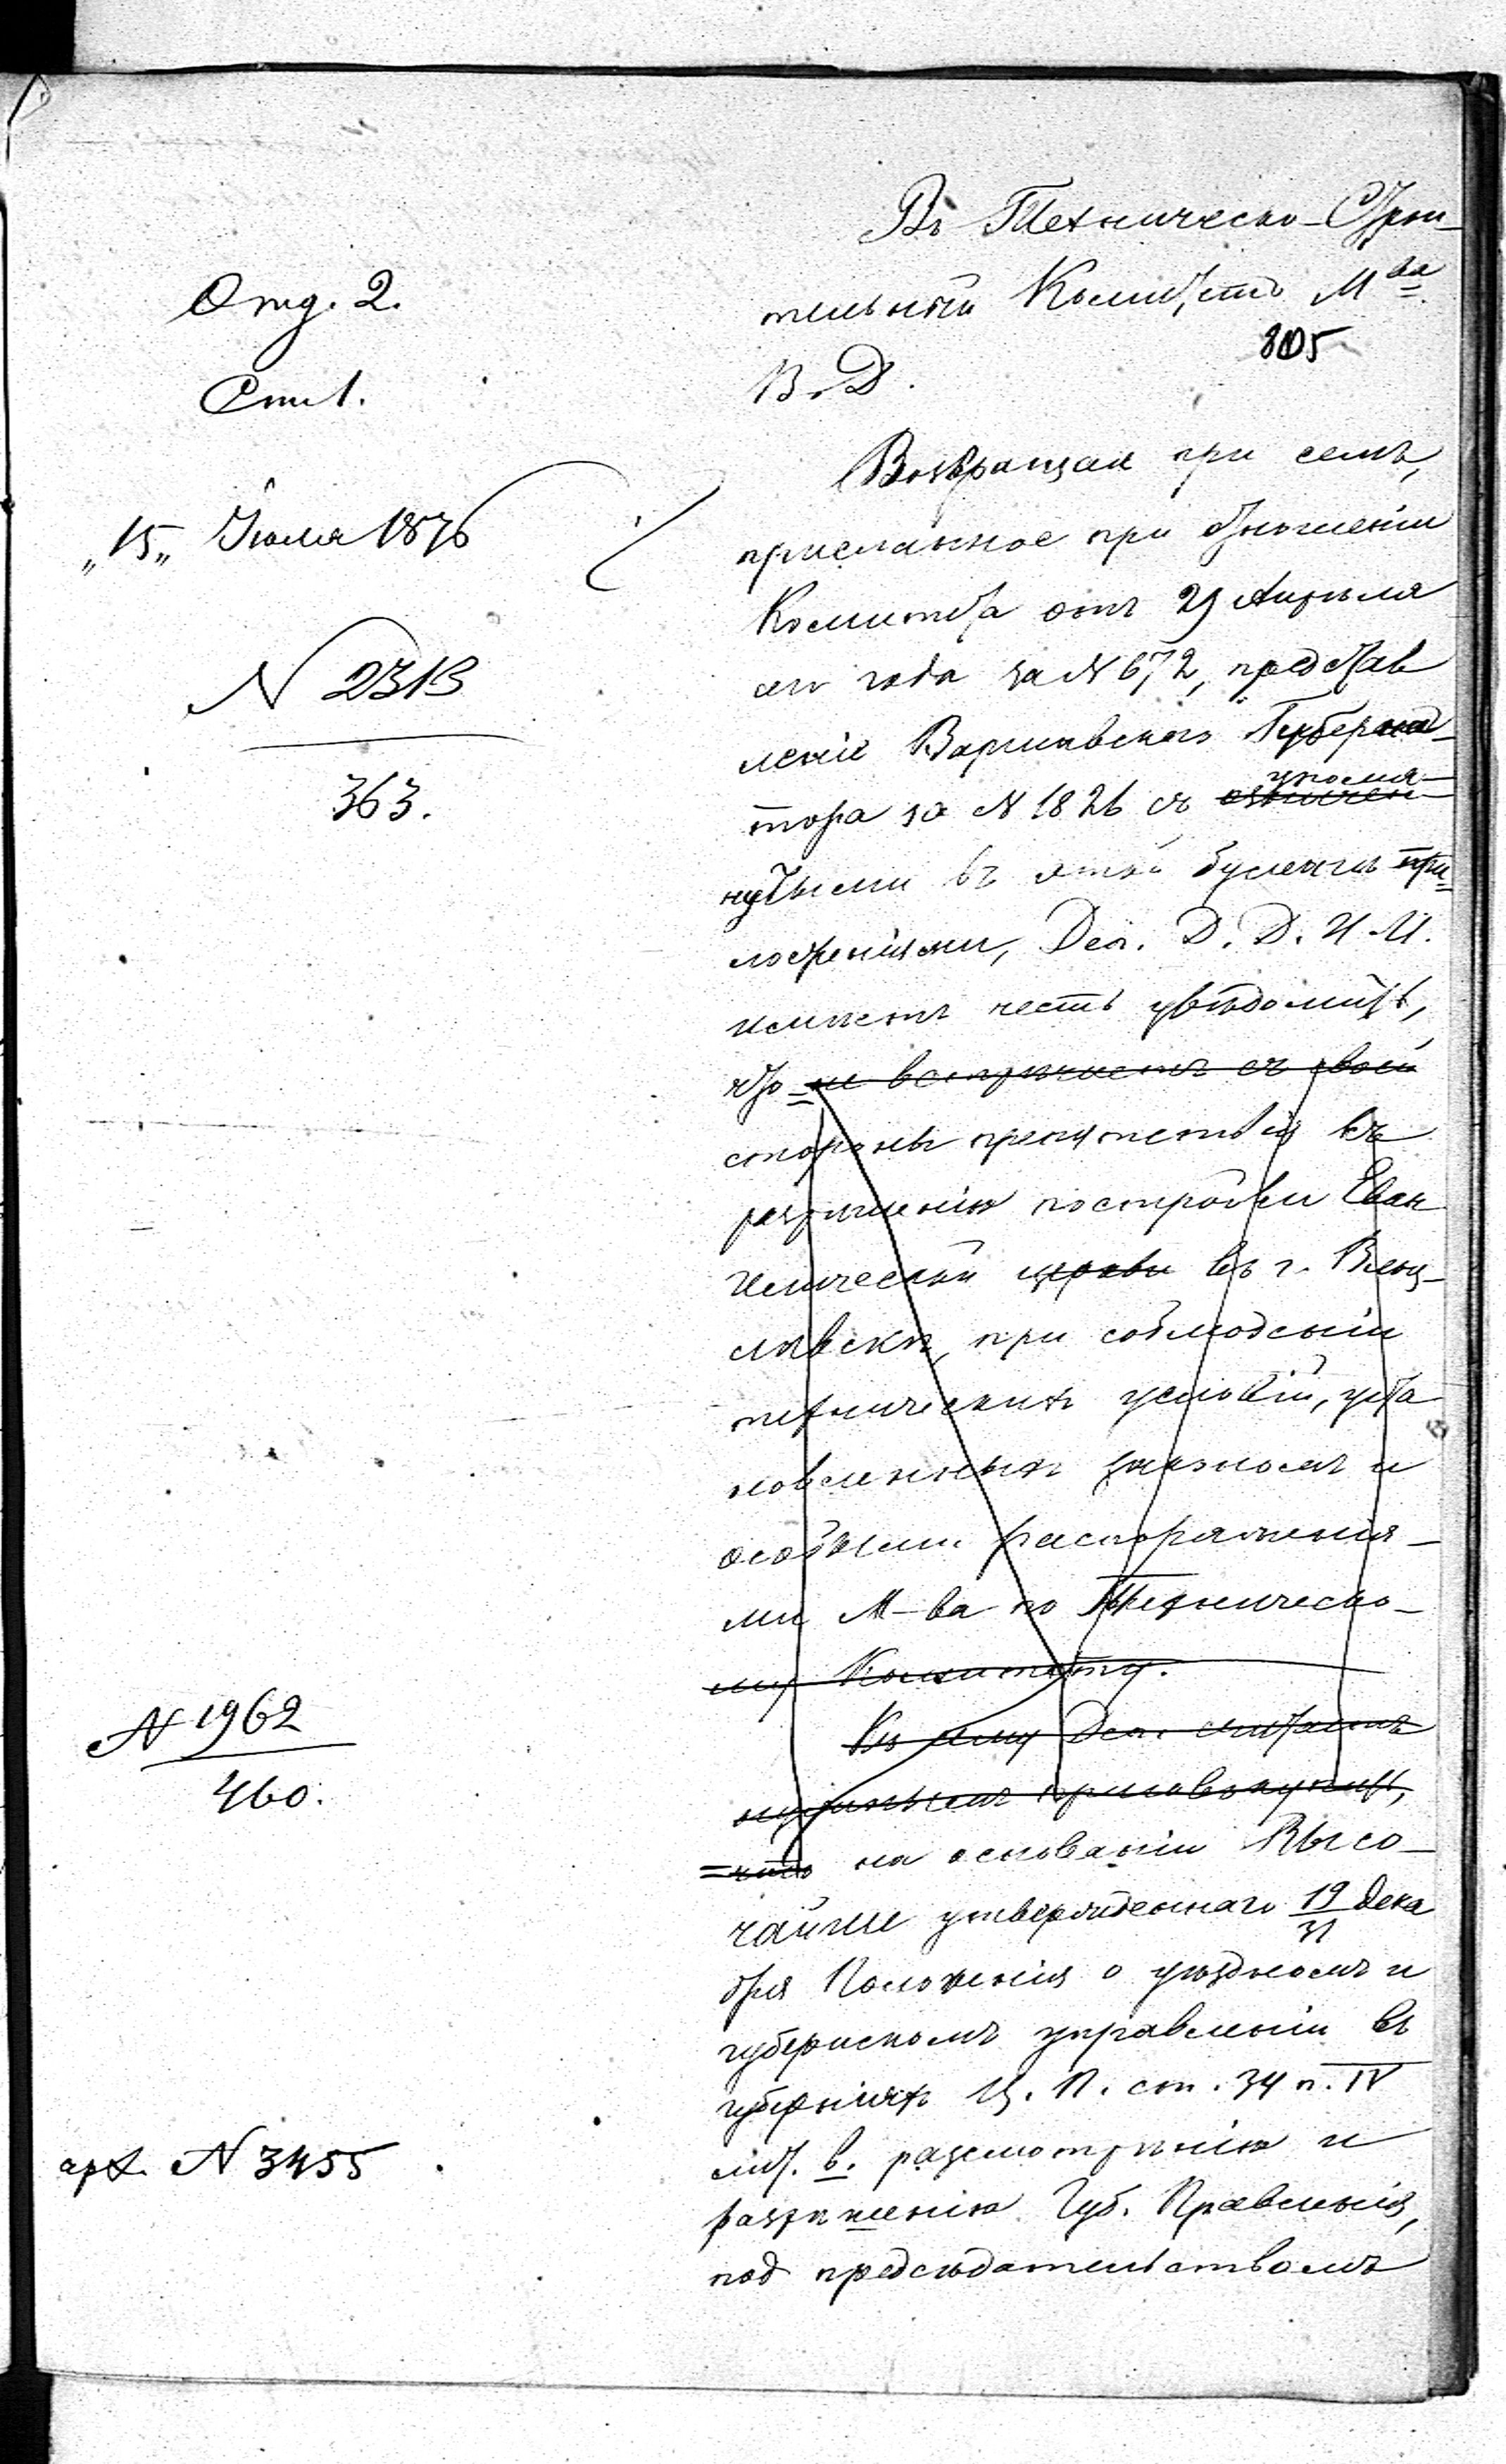 Въ Техническо-Строи-
тельный Комитетъ М<sup>ва</sup>
В. Д.
805
Отд. 2.
Ст. 1.
„15„ Июля 1876
N 2313
363.
Возвращая при семъ,
присланное при отношеніи
Комитета отъ 29 Апрѣля
сего года за N 672, представ
леніе Варшавскаго Губерна-
тора за N 1826 съ упомя-
нутыми въ этой бумагѣ при=
ложеніями, Деп. Д. Д. И. И.
имѣетъ честь увѣдомить,
что = не встрѣчаетъ съ своей
стороны препятствія къ
разрѣшенію постройки Еван
гелической церкви въ г. Влоц-
лавскѣ, при соблюденіи
техническихъ условій, уста
новленныхъ закономъ и
особыми распоряженія-
ми М-ва по Техническо-
му Комитету.
Къ сему Деп. считаетъ
нужнымъ присовокупить,
=что на основаніи Высо-
чайше утвержденнаго 19/31 Дека
бря Положенія о уѣздномъ и
губернскомъ управленіи въ
губерніяхъ Ц. П. ст. 34 п. IV
лит. в. разсмотрѣнію и
разрѣшенію Губ. Правленія,
под предсѣдательствомъ
N 1962
460.
арх. N 3455